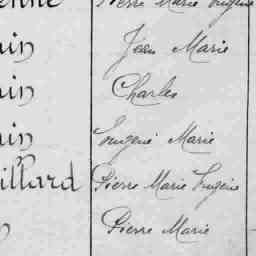 enne Pierre Marie Eugène
in Jean Marie
in Charles
in Eugène Marie
illard Pierre Marie Eugène
Pierre Marie